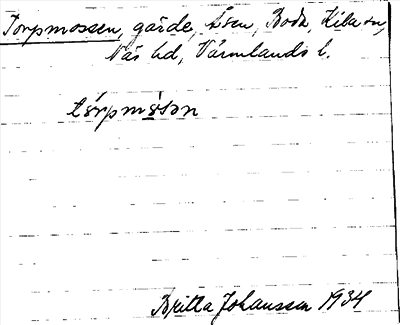 Torpmossen, gärde, Åsen, Boda, Kila sn,
Näs hd, Värmlands l.
tórpmòsən
Britta Johansson 1934